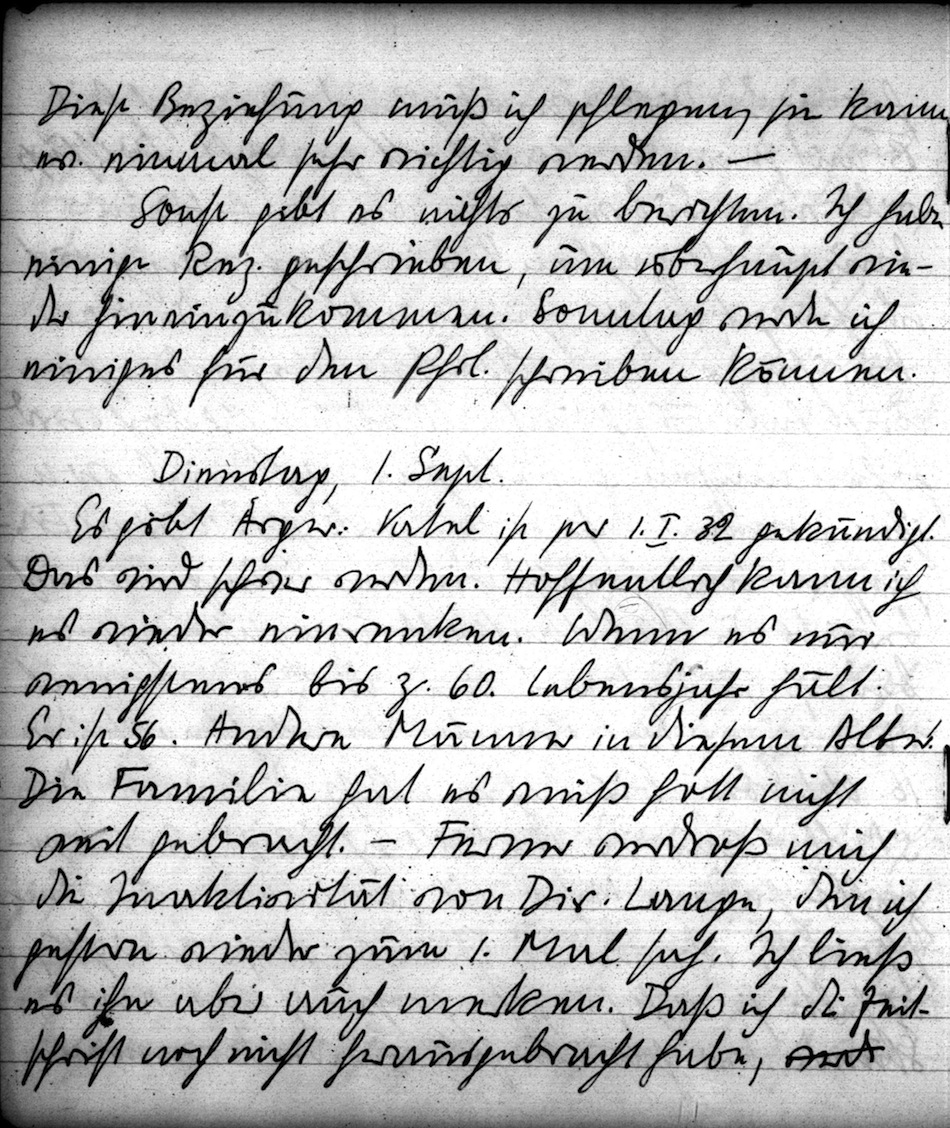 Diese Beziehung muß ich pflegen, sie kann
es einmal sehr wichtig werden. —
Sonst gibt es nichts zu berichten. Ich habe
einige Rez. geschrieben, um überhaupt wie-
der hineinzukommen. Sonntag werde ich
einiges für den schreiben können.
Dienstag, 1. Sept.
Es gibt Ärger: Vatel ist per 1. I. 32 gekündigt.
Das wird schwer werden. Hoffentlich kann ich
es wieder einrenken. Wenn es nur
wenigstens bis z. 60. Lebensjahr hält.
Er ist 56. Andere Männer in diesem Alter!
Die Familie hat es weiß Gott nicht
weit gebracht. – Ferner verdroß mich
die Inaktivität von Dir. Lange, den ich
gestern wieder zum 1. Mal sah. Ich ließ
es ihn aber auch merken. Daß ich die Zeit-
schrift noch nicht herausgebracht habe,